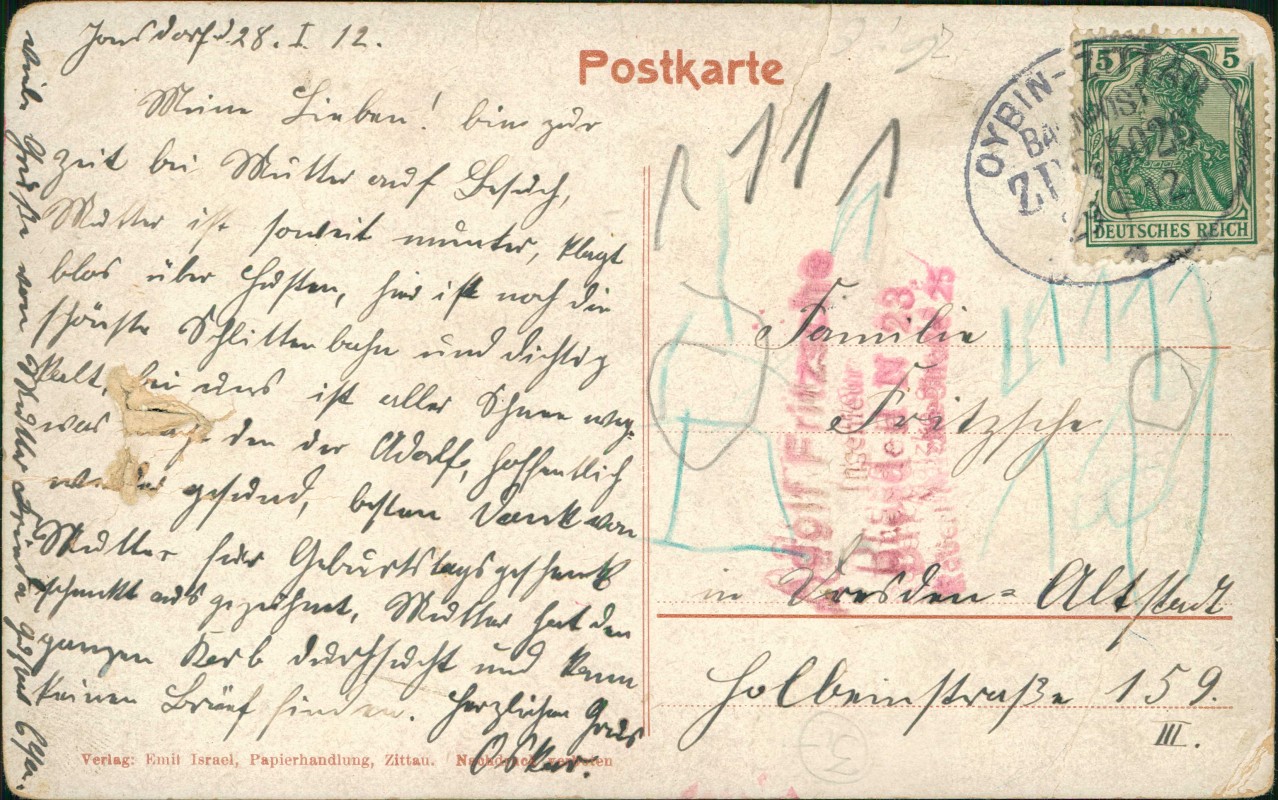 Jonsdorf d. 28. I. 12.
Meine Lieben! bin zur
Zeit bei Mutter auf Besuch,
Mutter ist soweit munter, klagt
blos über Husten, hier ist noch die
schönste Schlittenbahn und dichtig
kalt, bei uns ist aller Schnee weg,
was den der Adolf, hoffentlich
wieder gesund, besten Dank von
Mutter für Geburtstagsgeschenk
schmeckt ausgezeichnet, Mutter hat den
ganzen Korb durchsucht und kann
keinen Brief finden. Herzlichen Gruß
Oskar.
viele Grüße von Mutter
Postkarte
5 5
DEUTSCHES REICH
OYBIN-
12
Familie
Fritzsche
in Dresden-Altstadt
Holbeinstraße 159.
III.
Adolf Fritzsche
Ingenieur
Dresden
Verlag: Emil Israel, Papierhandlung, Zittau. Nachdruck verboten